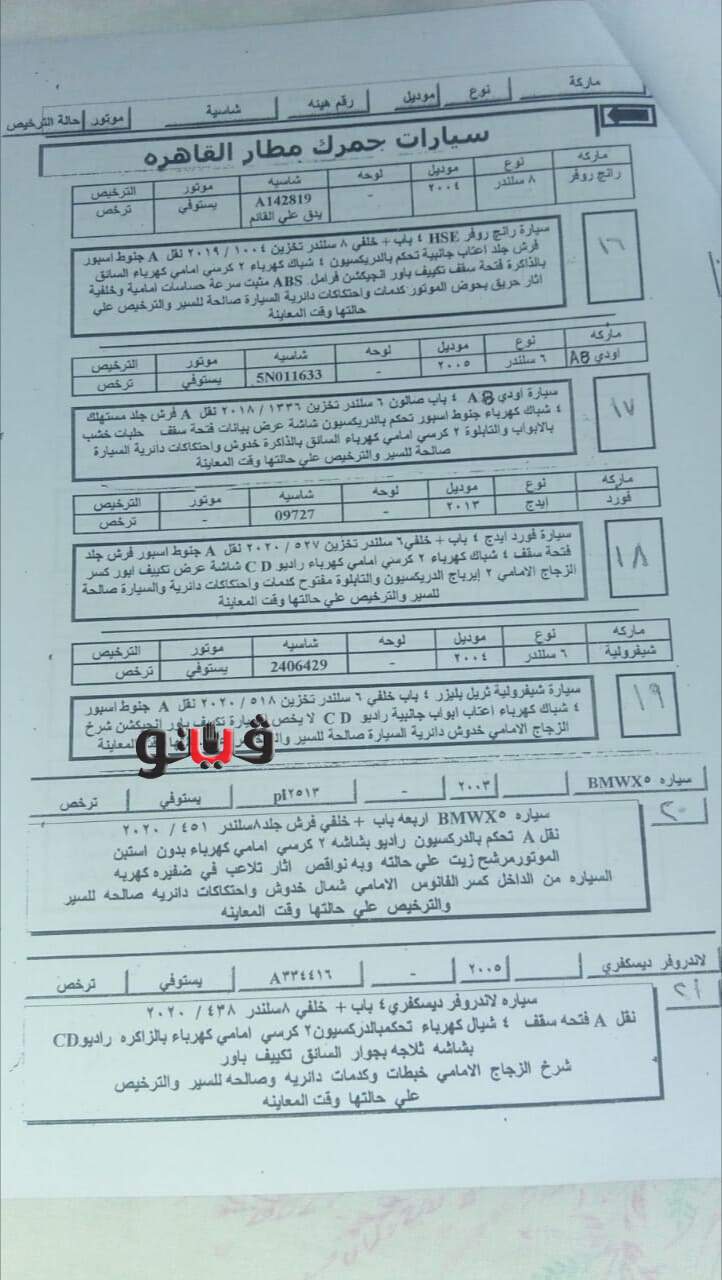 ماركة نوع موديل رقم هينه شاسية موتور حالة الترخيص
سيارات جمرك مطار القاهره
ماركه نوع موديل لوحه شاسيه موتور الترخيص
رانج روفر ٨ سلندر ٢٠٠٤ - A142819 يدق علي القائم يستوفي ترخص
١٦
سيارة رانج روفر HSE ٤ باب + خلفي ٨ سلندر تخزين ١٠٠٤ / ٢٠١٩ نقل A جنوط اسبور
فرش جلد اعتاب جانبية تحكم بالدريكسيون ٤ شباك كهرباء ٢ كرسي امامي كهرباء السائق
بالذاكرة فتحة سقف تكييف باور انجيكشن فرامل ABS مثبت سرعة حساسات امامية وخلفية
اثار حريق بحوض الموتور كدمات واحتكاكات دائرية السيارة صالحة للسير والترخيص علي
حالتها وقت المعاينة
ماركه نوع موديل لوحه شاسيه موتور الترخيص
أودي A8 ٦ سلندر ٢٠٠٥ - 5N011633 يستوفي ترخص
١٧
سيارة أودي A8 ٤ باب صالون ٦ سلندر تخزين ١٣٣٦ / ٢٠١٨ نقل A فرش جلد مستهلك
٤ شباك كهرباء جنوط اسبور تحكم بالدريكسيون شاشة عرض بيانات فتحة سقف حليات خشب
بالابواب والتابلوة ٢ كرسي امامي كهرباء السائق بالذاكرة خدوش واحتكاكات دائرية السيارة
صالحة للسير والترخيص علي حالتها وقت المعاينة
ماركه نوع موديل لوحه شاسيه موتور الترخيص
فورد ايدج ٢٠١٣ - 09727 - ترخص
١٨
سيارة فورد ايدج ٤ باب + خلفي٦ سلندر تخزين ٥٢٧ / ٢٠٢٠ نقل A جنوط اسبور فرش جلد
فتحة سقف ٤ شباك كهرباء ٢ كرسي امامي كهرباء راديو C D شاشة عرض تكييف ابور كسر
الزجاج الامامي ٢ إيرباج الدريكسيون والتابلوة مفتوح كدمات واحتكاكات دائرية والسيارة صالحة
للسير والترخيص علي حالتها وقت المعاينة
ماركه نوع موديل لوحه شاسيه موتور الترخيص
شيفرولية ٦ سلندر ٢٠٠٤ - 2406429 يستوفي ترخص
١٩
سيارة شيفرولية تريل بليزر ٤ باب خلفي ٦ سلندر تخزين ٥١٨ / ٢٠٢٠ نقل A جنوط اسبور
٤ شباك كهرباء اعتاب ابواب جانبية راديو C D لا يخص السيارة تكييف باور انجيكشن شرخ
الزجاج الامامي خدوش دائرية السيارة صالحة للسير وقت المعاينة
ڤيتو
سياره BMWX٥ ٢٠٠٣ - pl٢٥١٣ يستوفي ترخص
٢٠
سياره BMWX٥ اربعه باب + خلفي فرش جلد٨سلندر ٤٥١ / ٢٠٢٠
نقل A تحكم بالدركسيون راديو بشاشه ٢ كرسي امامي كهرباء بدون استبن
الموتورمرشح زيت علي حالته وبه نواقص اثار تلاعب في ضفيره كهربه
السياره من الداخل كسر الفانوس الامامي شمال خدوش واحتكاكات دائريه صالحه للسير
والترخيص علي حالتها وقت المعاينه
لاندروفر ديسكفري ٢٠٠٥ - A٣٣٤٤١٦ يستوفي ترخص
٢١
سياره لاندروفر ديسكفري٤ باب + خلفي ٨سلندر ٤٣٨ / ٢٠٢٠
نقل A فتحه سقف ٤ شيال كهرباء تحكمبالدركسيون٢ كرسي امامي كهرباء بالزاكره راديوCD
بشاشه ثلاجه بجوار السائق تكييف باور
شرخ الزجاج الامامي خبطات وكدمات دائريه وصالحه للسير والترخيص
علي حالتها وقت المعاينه